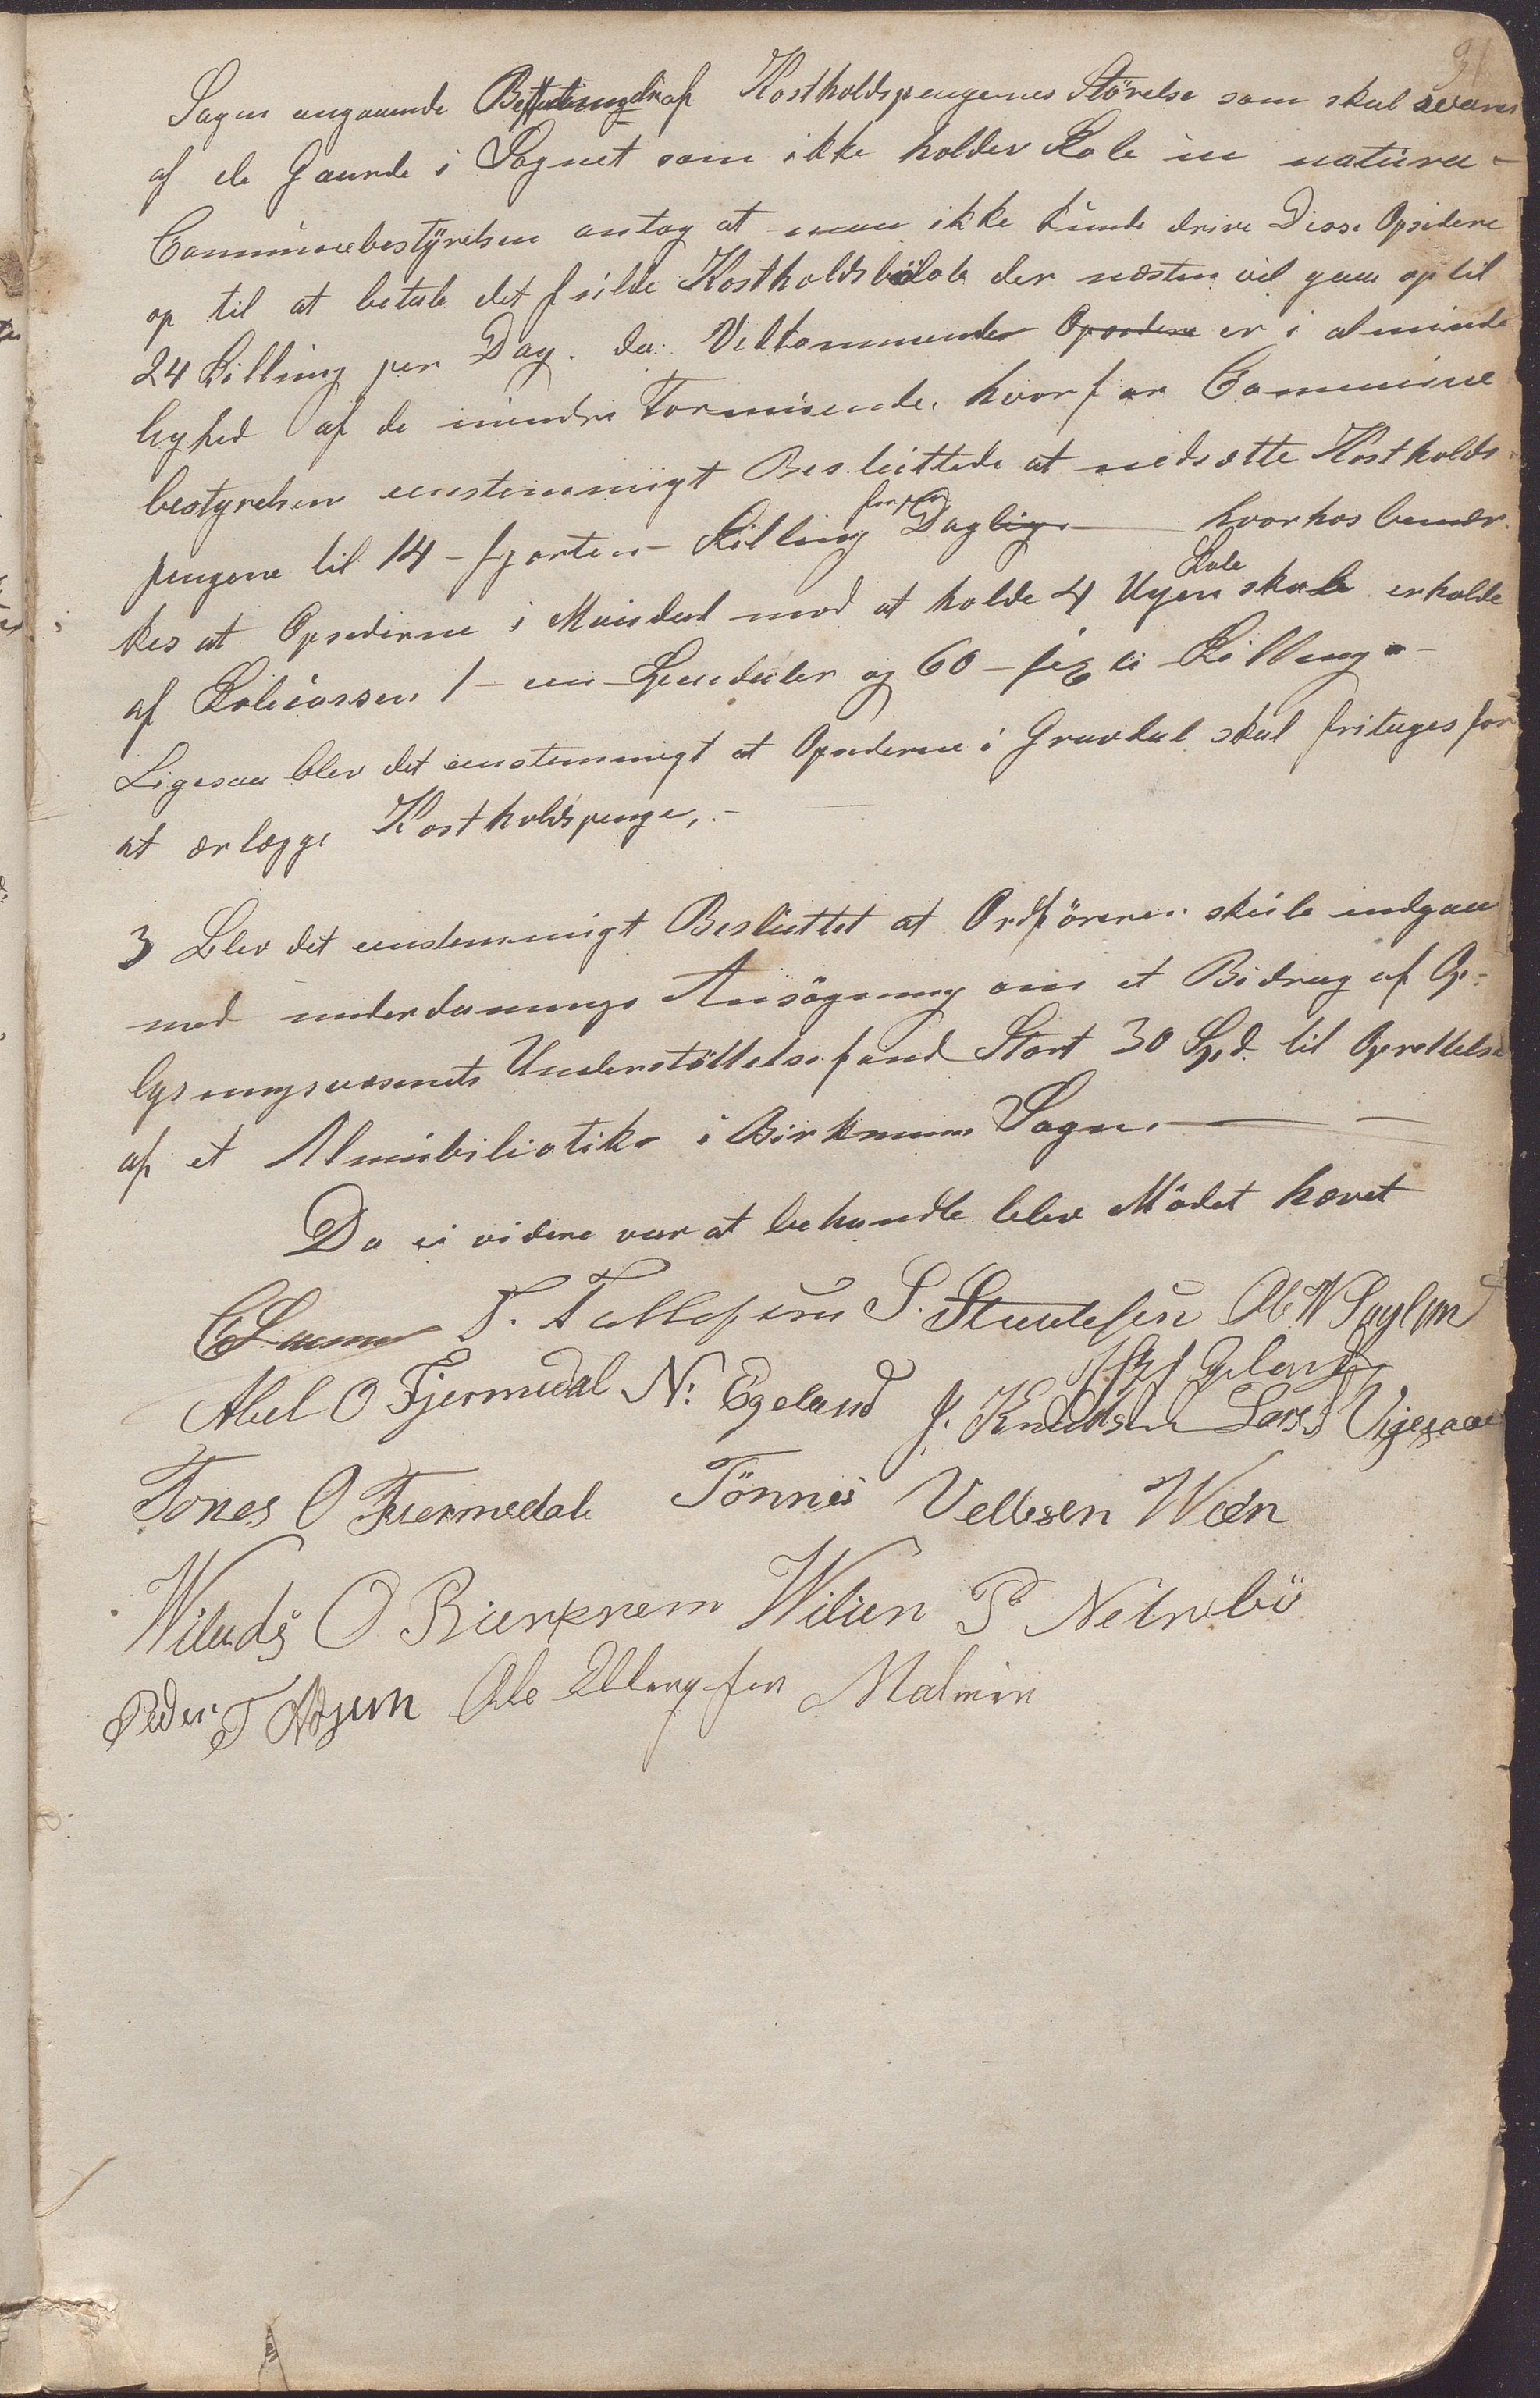 31
Sagen angaaende af Kostholdspengenes Störelse som skal svares
af de Gaarde i Sognet som ikke holder Skole in natura -
Communebestÿrelsen antog at man ikke kunde drive Disse Opsidere
op til at betale det fulde Kostholdsbelöb der næsten vil gaa op til
24 Skilling per Dag. da Vedkommende Opsidere er i alminde
lighed af de mindre Formuende. hvorfor Commune
bestyrelsen eenstemmigt Besluttede at nedsætte Kostholds
pengene til 14 - fjorten - Skilling for per Daglig. hvorhos bemær-
kes at Opsiderne i Maudal mod at holde 4 Uger Skole skal erholde
af Skolecassen 1 - en - Speciedaler og 60 - sexti - Skilling -
Ligesaa blev det eenstemmigt at Opsiderne i Gravdal skal fritages for
at erlægge Kostholdspenge, -
3 Blev det eenstemmigt Besluttet at Ordföreren skulle indgaa
med underdanings Ansögning om et Bidrag af Op-
lysningsvæsenets Understöttelsesfond Stort 30 Spd. til Oprettelse
af et Almubiliotike i Birkrems Sogn.
Da ei videre var at behandle blev Mödet hævet
T. Tollefsen S. Ole N
Abel O Fjermedal N: Egeland J. Knudsen Lars Vigesaae
Tones O Fiermedal Tönnes Vellesen Wæn
O Bierkrem Wilien P Netrebö
Peder T Ole Ellingsen Malmin